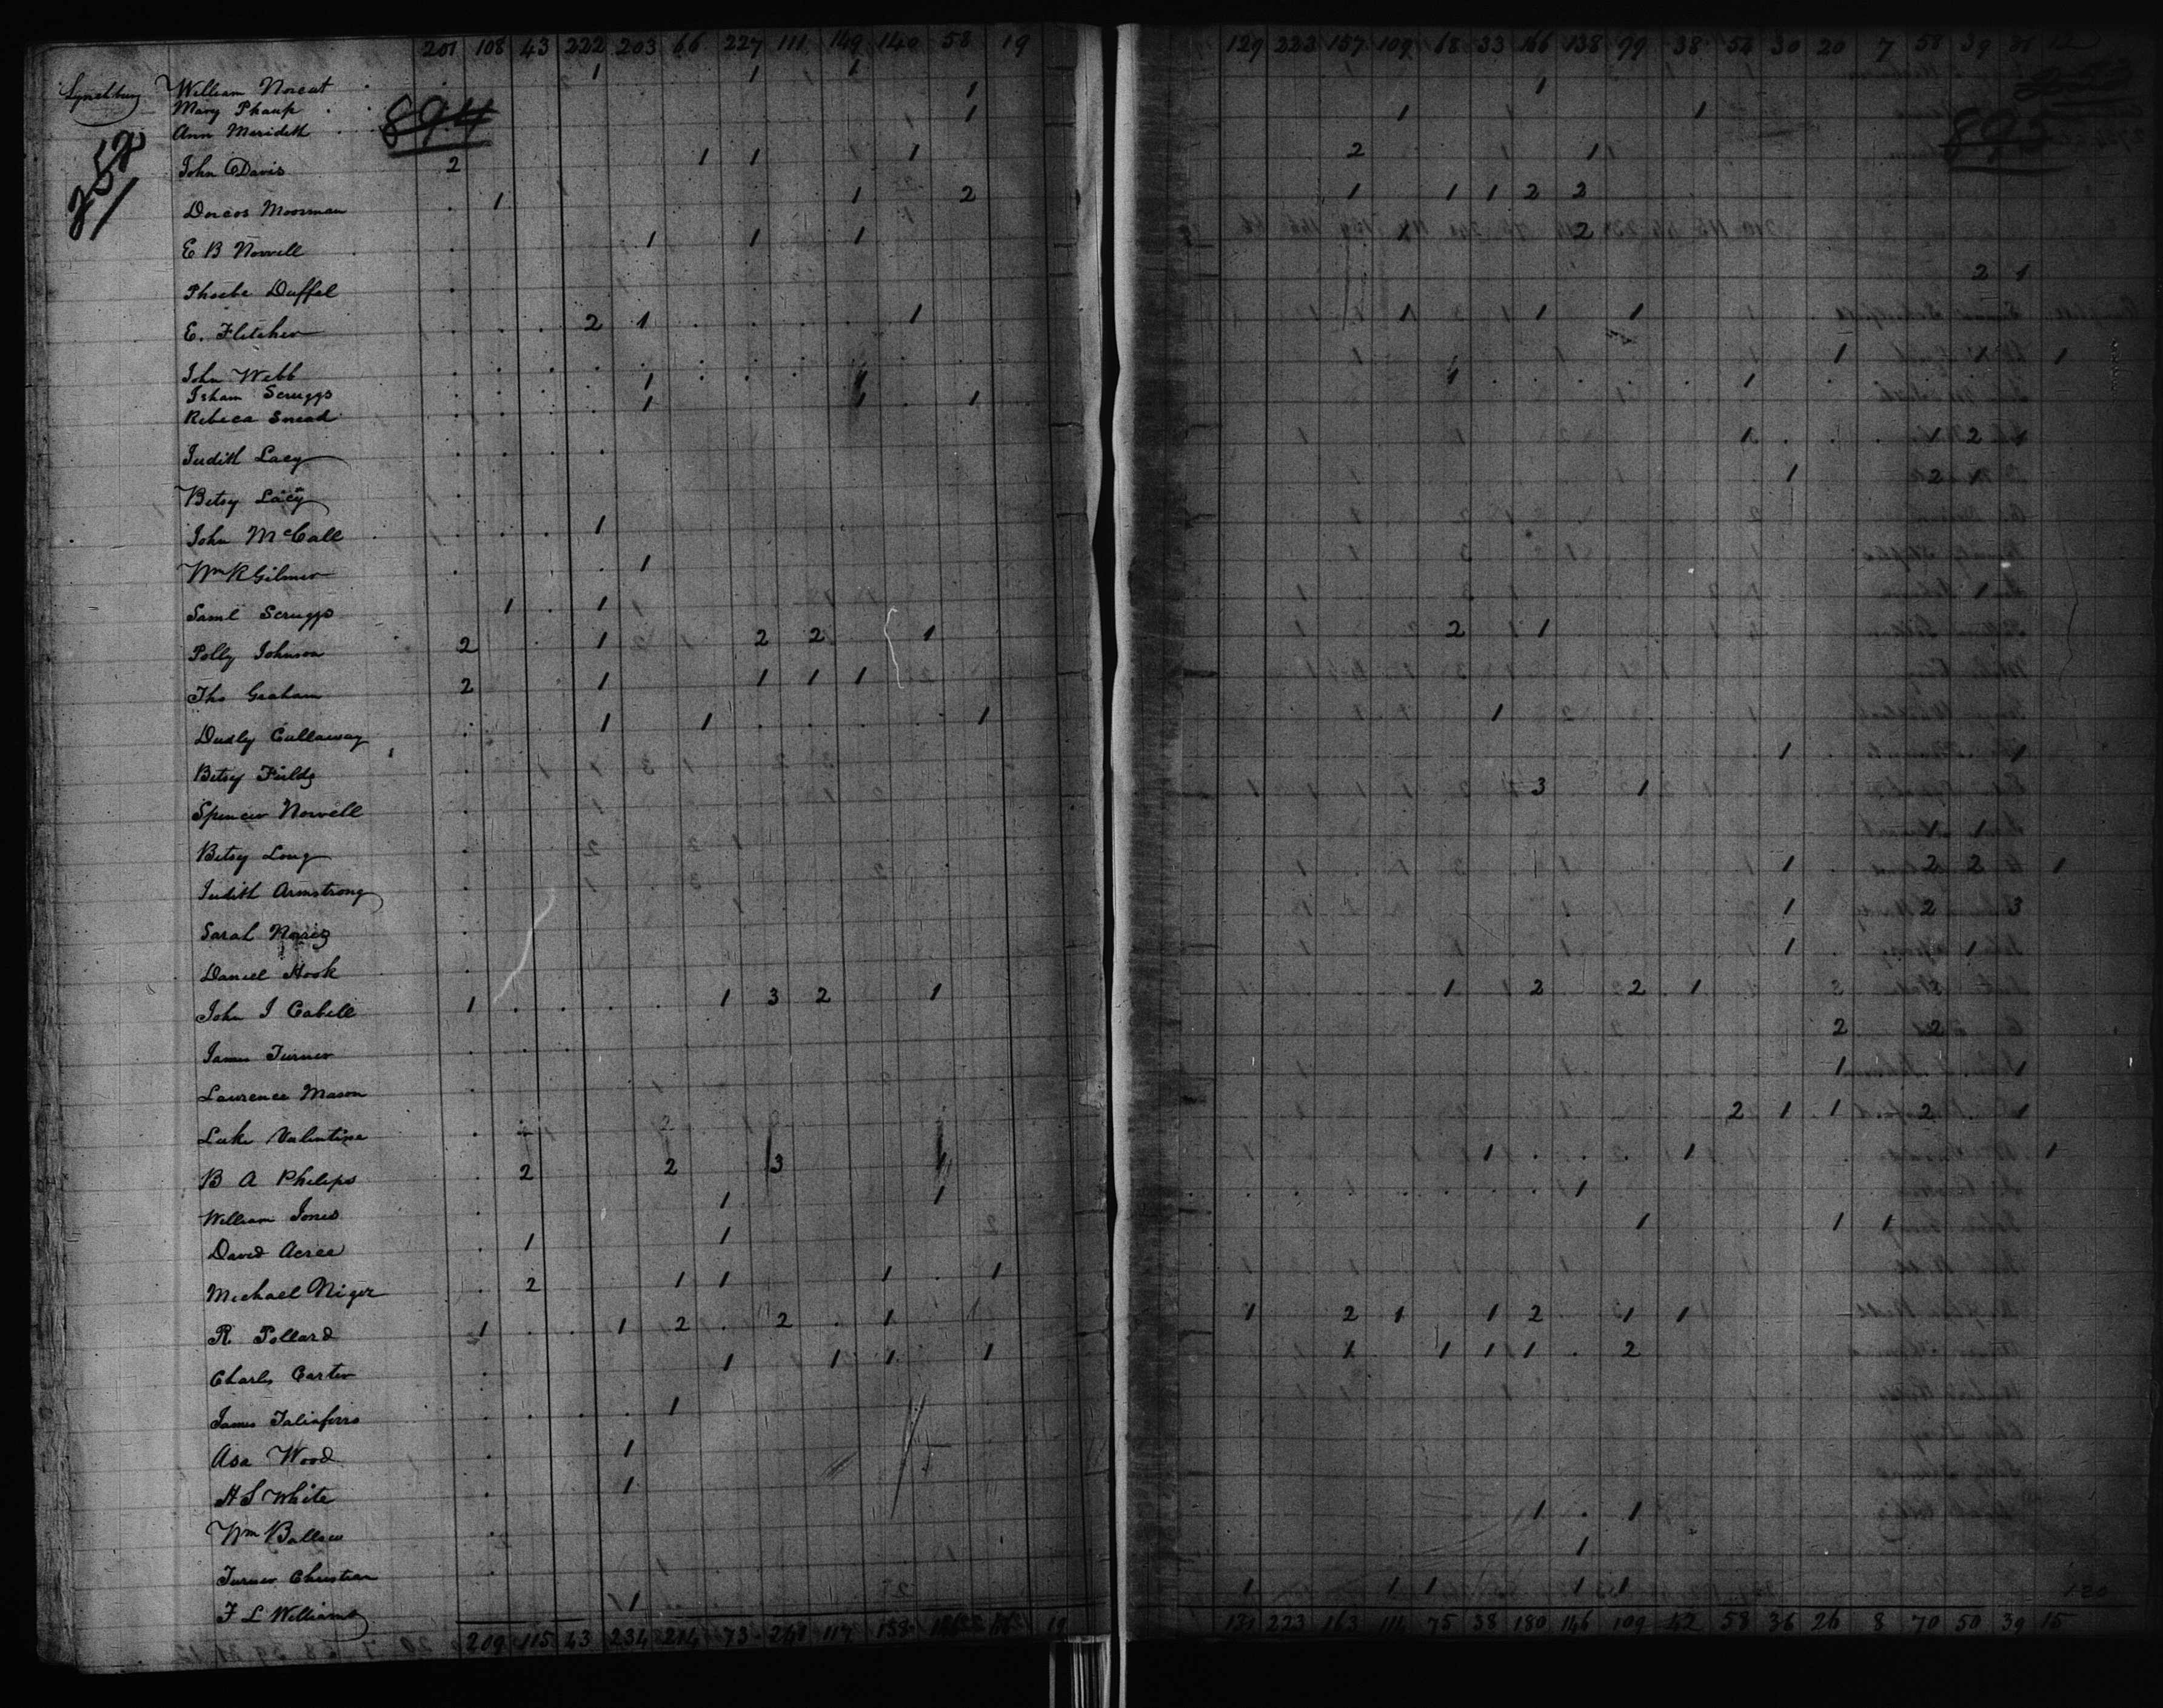 201 108 43 222 203 66 227 111 149 140 58 19 129 223 157 109 68 33 166 138 99 38 54 30 20 7 58 39 31 12
Lynchburg William Norcut 1 1 1
Mary Phaup 1 1
Ann Merideth 1 1 1
894
895
John Davis 2 1 1 1 2 1
Dorcas Moorman 1 1 2 1 1 1 2 2
E B Norvell 1 1 1 1 2
Phoebe Duffel 2 1
E. Fletcher 2 1 1 1 1 1
John Webb 1 1
Isham Scruggs 1 1 1 1
Rebeca Snead 1 1 1
Judith Lacy 1 1 2 1
Betsy Lacy 1 2 1
John McCall 1
Wm R Gilmer 1
Saml Scruggs 1 1
Polly Johnson 2 1 2 2 1 2 1
Tho Graham 2 1 1 1 1
Dudly Callaway 1 1 1 1
Betsy Fields 1 1
Spencer Norvell 1 3 1
Betsy Long 1 1
Judith Armstrong 1 2 2 1
Sarah 1 2 3
Daniel Hook 1 1
John J Cabell 1 1 3 2 1 1 2 2 1
James Turner 2 2
Laurence Mason 1 1
Luke Valentine 2 1 1 2 1
B A Philips 2 2 3 1 1 1 1
William Jones 1 1 1
David Acree 1 1 1 1 1
Michael Niger 2 1 1 1 1
R Pollard 1 1 2 2 1 1 2 1 1 2 1 1
Charles Carter 1 1 1 1 1 1 1 1 2
James Taliaferro 1
Asa Wood 1
H S White 1
Wm Ballow 1 1
Turner Christian 1
F L Williams 1 1 1 1 1 1
209 115 43 234 214 73 241 117 158 19 131 223 163 114 75 38 180 146 109 42 58 36 26 8 70 50 39 15